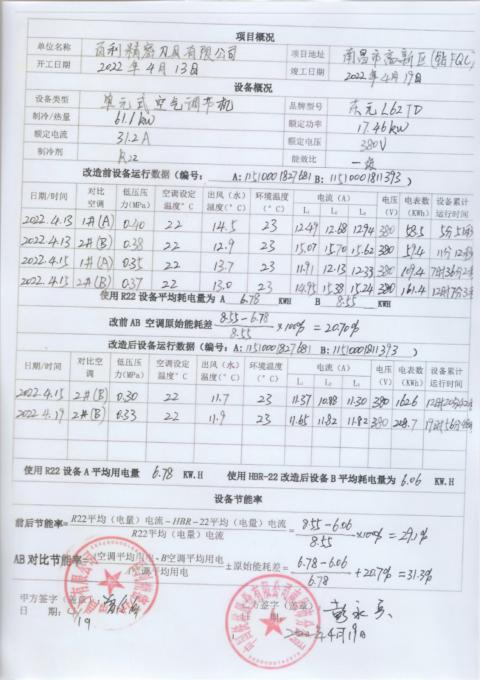 项目概况
单位名称 百利精密刀具有限公司 项目地址 南昌市高新区(钻FQC)
开工日期 2022年4月13日 竣工日期 2022年4月19日
设备概况
设备类型 单元式空气调节机 品牌型号 东元L62TD
制冷/热量 61.1kw 额定功率 17.46kw
额定电流 31.2A 额定电压 380V
制冷剂 R22 能效比 一级
改造前设备运行数据(编号: A:11510001827681 B:11510001811393 )
日期/时间 对比空调 低压压力(MPa) 空调设定温度°C 出风(水)温度°C 环境温度°C 电流(A) L₁ L₂ L₃ 电压(V) 电表数(KWh) 设备累计运行时间
2022.4.13 1#(A) 0.40 22 14.5 23 12.49 12.68 12.94 380 58.5
2022.4.13 2#(B) 0.38 22 12.9 23 15.07 15.70 15.62 380 59.4
2022.4.15 1#(A) 0.35 22 13.7 23 11.91 12.13 12.33 380 109.4
2022.4.15 2#(B) 0.37 22 13.0 23 14.95 15.38 15.24 380 161.4
使用 R22 设备平均耗电量为 A 6.78 KWH B 8.55 KWH
改前 AB 空调原始能耗差 8.55-6.78/8.55 ×100% = 20.70%
改造后设备运行数据(编号:A:11510001827681 B:11510001811393 )
日期/时间 对比空调 低压压力(MPa) 空调设定温度°C 出风(水)温度°C 环境温度°C 电流(A) L₁ L₂ L₃ 电压(V) 电表数(KWh) 设备累计运行时间
2022.4.15 2#(B) 0.30 22 11.7 23 11.37 10.98 11.30 380 162.6
2022.4.19 2#(B) 0.33 22 11.9 23 11.65 11.82 11.82 380
使用 R22 设备 A 平均用电量 6.78 KW.H 使用 HBR-22 改造后设备 B 平均耗电量为 6.06 KW.H
设备节能率
前后节能率= R22平均(电量)电流-HBR-22平均(电量)电流/R22平均(电量)电流 = 8.55-6.06/8.55 ×100% = 29.1%
AB 对比节能率= 空调平均用电-B空调平均用电/空调平均用电 ±原始能耗差= 6.78-6.06/6.78 +20.7% = 31.3%
甲方签字(盖章)
方签字(盖章)
日 期:
19
日 期: 2022年4月19日